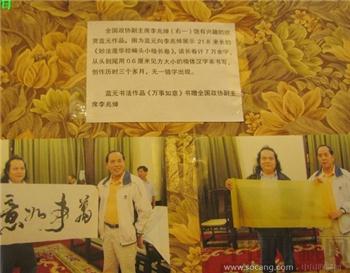 全国政协副主席李兆焯（右一）饶有兴趣的欣
赏蓝元作品。图为蓝元向李兆焯展示 21.8 米长的
《妙法莲华经蝇头小楷长卷》，该长卷计 7 万余字，
从头到尾用 0.6 厘米见方大小的楷体汉字来书写，
创作历时三个多月，无一错字出现。
蓝元书法作品《万事如意》书赠全国政协副主
席李兆焯
意如事萬
www.socang.com